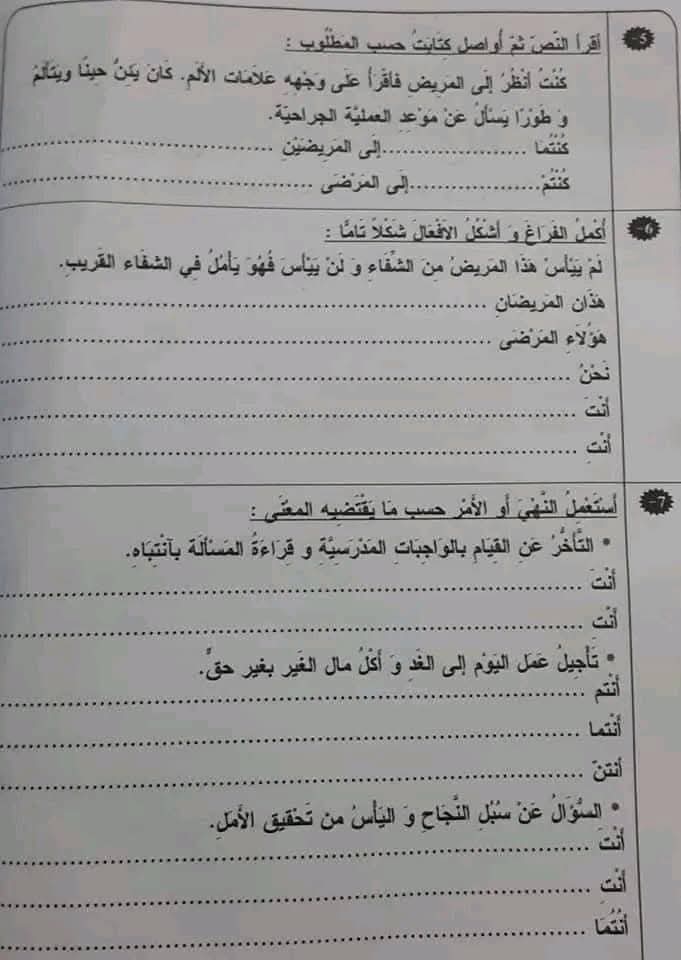 5- أقرأ النّصّ ثمّ أواصل كِتابَتُ حسب المَطْلُوب :
كُنْتُ أنْظُرُ إلَى المَرِيضِ فأقْرَأُ عَلَى وَجْهِهِ عَلَامَات الألَمِ. كَانَ يَئِنُّ حينًا ويَتألّمُ
وَ طَوْرًا يَسْألُ عَنْ مَوْعِدِ العمليَّة الجراحيّة.
كُنْتُمَا .....................إلَى المَرِيضَيْنِ .....................
كُنْتُمْ.....................إلَى المَرْضَى .....................
6- أُكْمِلُ الفَرَاغَ وَ أشْكُلُ الافْعَالَ شَكْلاً تَامًّا :
لَمْ يَيْأسْ هَذَا المَرِيضُ مِنَ الشِّفَاءِ وَ لَنْ يَيْأسَ فَهُوَ يَأمُلُ فِي الشفَاء القَرِيبِ.
هَذَان المَرِيضَانِ .....................
هَؤُلَاءِ المَرْضَى .....................
نَحْنُ .....................
أنْتَ .....................
أنْتِ .....................
7- أسْتَعْمِلُ النَّهْيَ أو الأمْرَ حسب مَا يَقْتَضِيه المعْنَى :
• التَّأخُّرُ عَنِ القِيَامِ بالوَاجِبَاتِ المَدْرَسِيَّةِ و قِرَاءَةُ المَسْألَة بآنْتِبَاهِ.
أنْتَ .....................
أنْتِ .....................
• تَأْجِيلُ عَمَل اليَوْمِ إلى الغَدِ وَ أكْلُ مال الغَير بغير حقٍّ.
أنْتم .....................
أنْتما .....................
أنتنّ .....................
• السُّؤَالُ عَنْ سُبُلِ النَّجَاحِ وَ اليَأسُ من تَحْقِيق الأمَلِ.
أنْتَ .....................
أنْتِ .....................
أنْتُمَا .....................